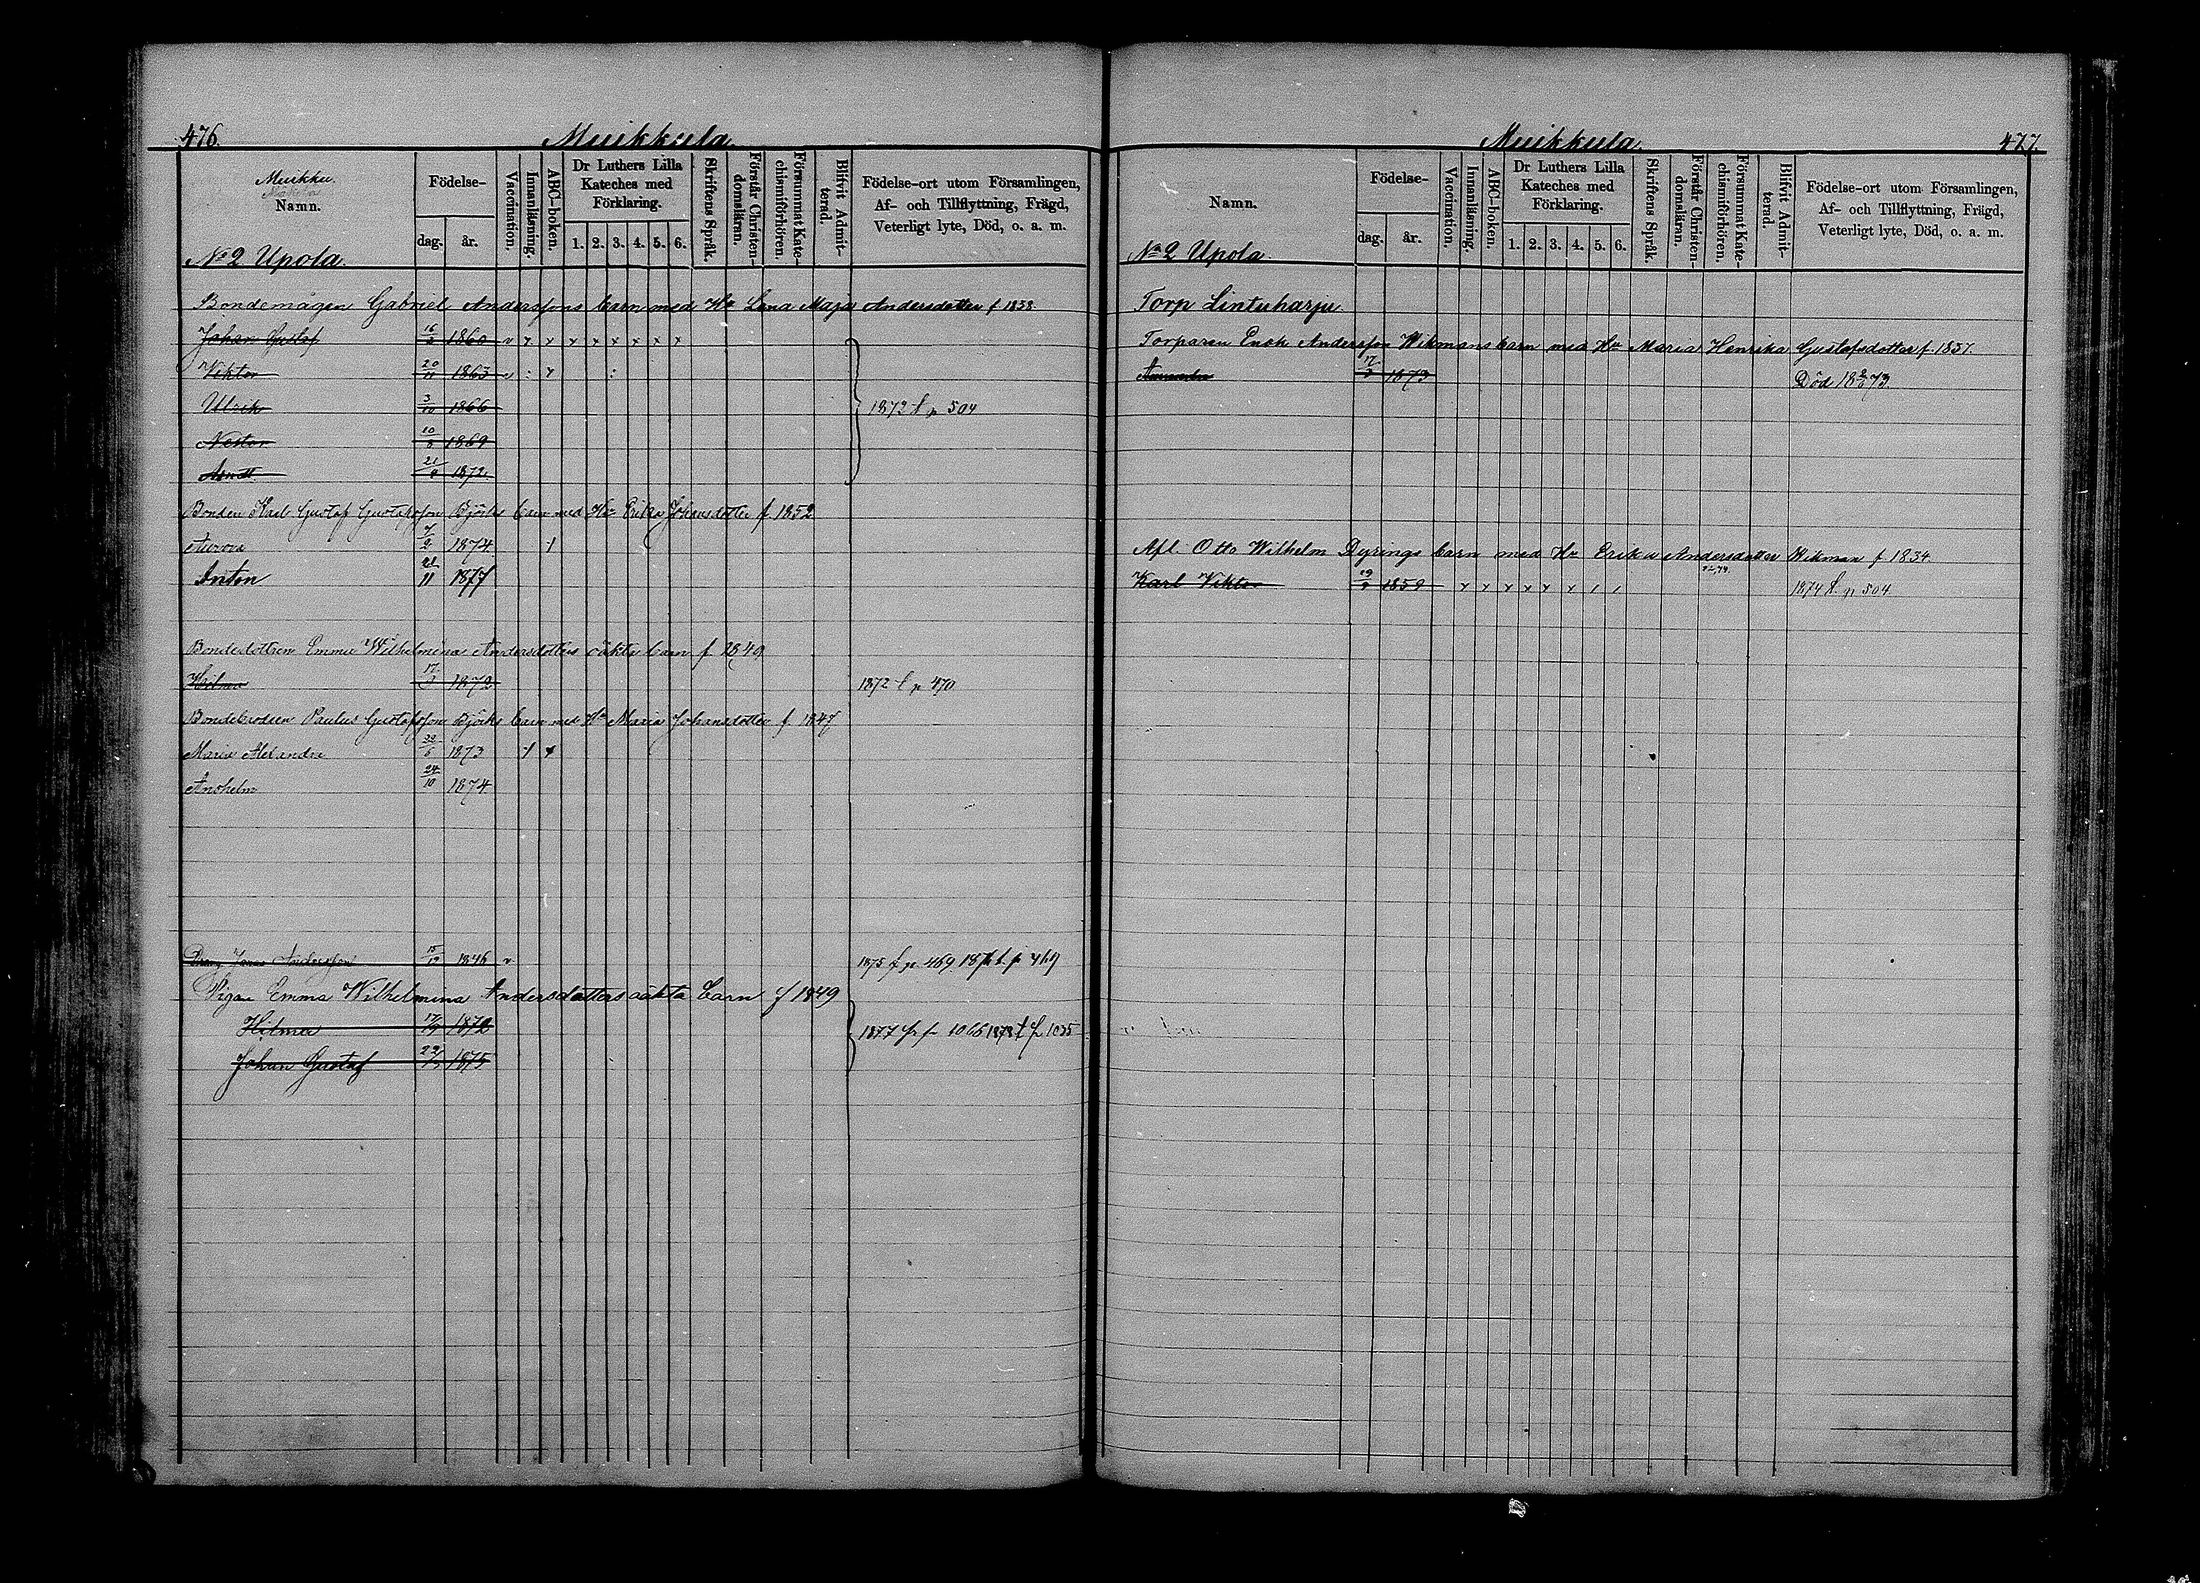 476.
Muikkula.
Muikku.
Namn.
Födelse-
dag. år.
Vaccination.
Innanläsning.
ABC-boken.
Dr Luthers Lilla
Kateches med
Förklaring.
1. 2. 3. 4. 5. 6.
Skriftens Språk.
Förstår Christen-
domsläran.
Försummat Kate-
chismiförhören.
Blifvit Admit-
terad.
Födelse-ort utom Församlingen,
Af- och Tillflyttning, Frägd,
Veterligt lyte, Död, o. a. m.
No 2 Upola.
Bondemågen Gabriel Anderssons barn med Hu Lena Maja Andersdotter f 1838
Johan Gustaf 1860 v x x x x x x x x
Viktor 20/11 1863 v : x :
Ulrik 3/10 1866 1872 t p 504
Nestor 10/8 1869
21/9 1872
Bonden Karl Gustaf Gustafsson Björks barn med Hu Erika Johansdotter f 1852
Aurora 1874
Anton 1877
Bondedottren Emma Wilhelmina Andersdotters oäkta barn f 1849
Hilma 1872 1872 t p 470
Bondebrodren Paulus Gustafsson Björks barn med Hu Maria Johansdotter f 1847
Maria Alexandra 1873
Anshelm 24/10 1874
Dräng Jonas Andersson 1846 v 1875 f p. 469 t. p 469
Pigan Emma Wilhelmina Andersdotters oäkta barn f 1849
Hilma 1872 1877 f 1066 1878 t p 1035
Johan Gustaf 1875
Muikkula.
477.
Namn.
Födelse-
dag. år.
Vaccination.
Innanläsning.
ABC-boken.
Dr Luthers Lilla
Kateches med
Förklaring.
1. 2. 3. 4. 5. 6.
Skriftens Språk.
Förstår Christen-
domsläran.
Försummat Kate-
chismiförhören.
Blifvit Admit-
terad.
Födelse-ort utom Församlingen,
Af- och Tillflyttning, Frägd,
Veterligt lyte, Död, o. a. m.
No 2 Upola
Torp Lintuharju.
Torparen Enok Andersson Wikmans barn med Hu Maria Henrika Gustafsdotter f. 1857.
Amanda 1873 Död 73
Afl. Otto Wilhelm Dyrings barn med Hu Erika Andersdotter Wikman f 1834.
Karl Viktor 1859 x x x x x x 1874 t. p 504